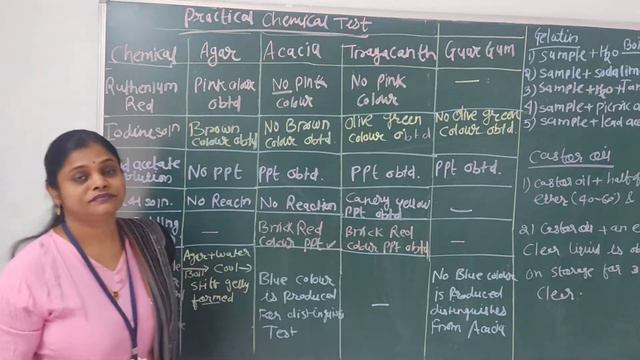 Practical Chemical Test
Chemical Agar Acacia Tragacanth Guar Gum
Ruthenium Red
Pink colour obtd
No Pink colour
No Pink colour
—
Iodine soln
Brown colour obtd
No Brown colour obtd.
Olive green colour obtd
No Olive green colour obtd.
acetate
No PPT
PPT obtd.
PPT obtd.
PPT obtd.
soln.
No Reacn
No Reaction
Canery yellow
PPT obtd
—
—
Brick Red
Colour PPT ✓
Brick Red
Colour PPT obtd
—
Agar + water
Boil → Cool →
stiff gelly
formed
Blue colour
is produced
For distinguis
Test
—
No Blue colour
is produced
distinguishes
From Acacia
Gelatin
1) sample + H2O
2) sample + sodalim
3) sample + H2O + Tan
4) sample + picric a
5) sample + lead ace
Castor oil
1) castor oil + half of
ether (40-60) &
2) castor oil + an e
Clear liquid is ob
on storage for 3
Clear.